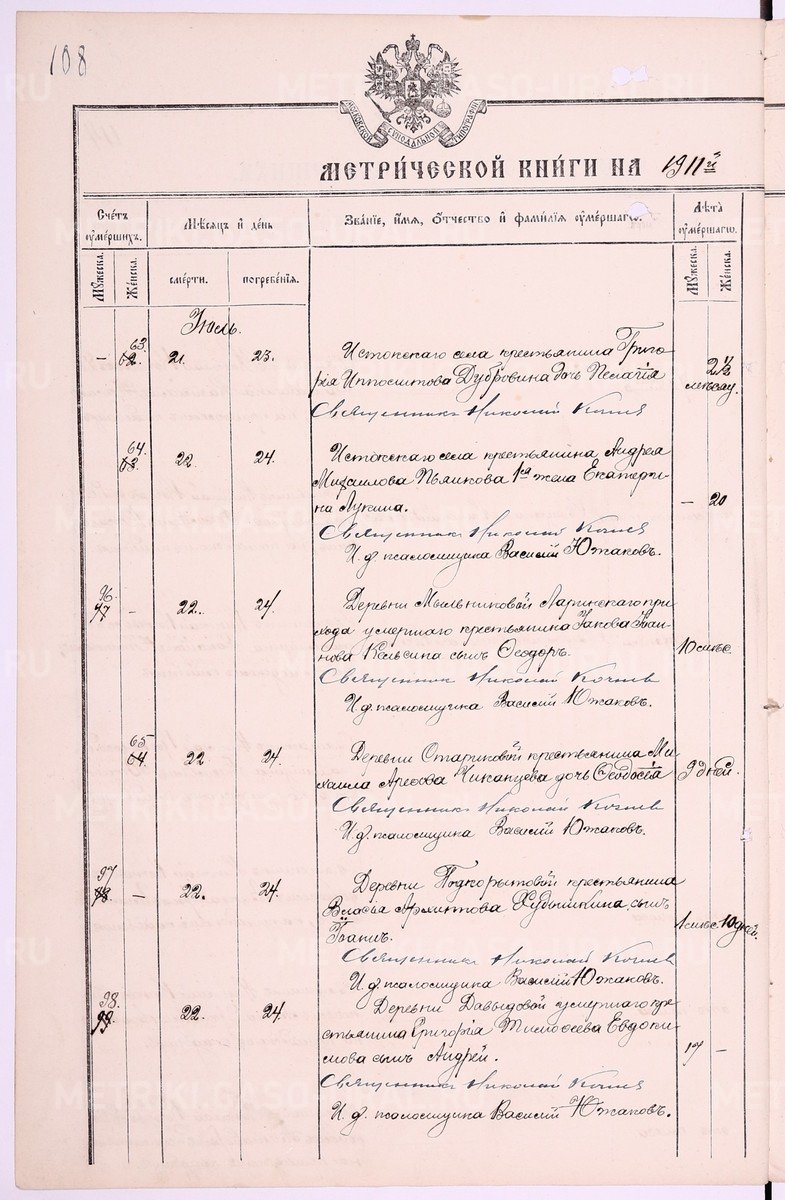 108
МОСКОВСКОЙ СѴНОДАЛЬНОЙ ТИПОГРАФІИ
МЕТРИ́ЧЕСКОЙ КНИ́ГИ НА 1911й
Сче́тъ ᲂумершихъ.
Мѣсяцъ и де́нь
Зва́нїе, и́мя, о́тчество и фами́лїя ᲂуме́ршагѡ.
Лѣ́та ᲂуме́ршагѡ.
Мужеска.
Женска.
сме́рти.
погребе́нїя.
Мужеска.
Женска.
Іюль.
— 63. 62. 21. 23.
Истокскаго села крестьянина Григо-
рія Ипполитова Дубровина дочь Пелагія
2 1/2
Священникъ Николай
64. 63. 22. 24.
Истокскаго села крестьянина Андрея
Михаилова Пьянкова 1ая жена Екатери-
на Лукина.
— 20
Священникъ Николай
И. д. псаломщика Василій Южаковъ.
96. 97 — 22. 24.
Деревни Мыльниковой Ларинскаго при-
хода умершаго крестьянина Іакова Іоан-
нова Кельсина сынъ Ѳеодоръ.
10 мѣс.
Священникъ Николай
И. д. псаломщика Василій Южаковъ.
65 64. 22 24.
Деревни Стариковой крестьянина Ми-
хаила дочь Ѳеодосія
9 дней.
Священникъ Николай
И. д. псаломщика Василій Южаковъ.
97 98. — 22. 24.
Деревни Подкорытовой крестьянина
Власія Архиппова сынъ
Іоаннъ.
1 мѣс. 10 дней.
Священникъ Николай
И. д. псаломщика Василій Южаковъ.
98. 99. 22. 24.
Деревни Давыдовой умершаго кре-
стьянина Григорія Тимоѳеева Евдоки-
мова сынъ Андрей.
17 —
Священникъ Николай
И. д. псаломщика Василій Южаковъ.